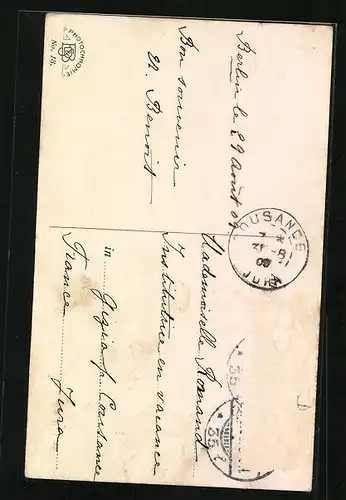 PHOTOCHROMIE
No. 12.
Berlin le 29 Août 09
Bon souvenir
Benoit
COUSANCE
JURA
Mademoiselle Romand
Institutrice en vacance
in
Cousance
France Jura
35
35